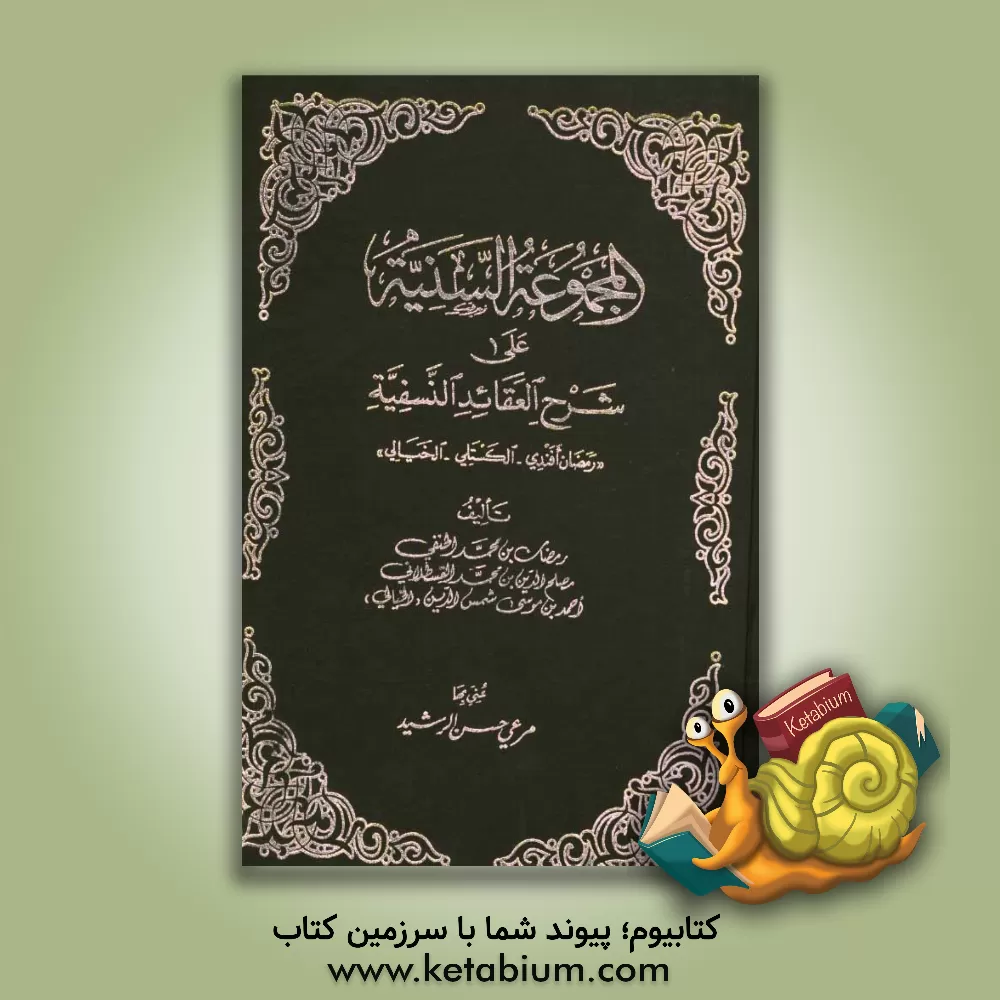 المَجْمُوعَةُ السَّنِيَّةُ
عَلَى
شَرْحِ العَقَائِدِ النَّسَفِيَّةِ
«رَمَضَان أفَنْدِي - الكَسْتَلِي - الخَيَالِي»
تَأْلِيفُ
رمضان بن محمد الحنفي
مصلح الدين بن محمد القسطلاني
أحمد بن موسى شمس الدين (الخيالي)
عُنِيَ بها
مرعي حسن الرشيد
Ketabium
کتابیوم؛ پیوند شما با سرزمین کتاب
www.ketabium.com